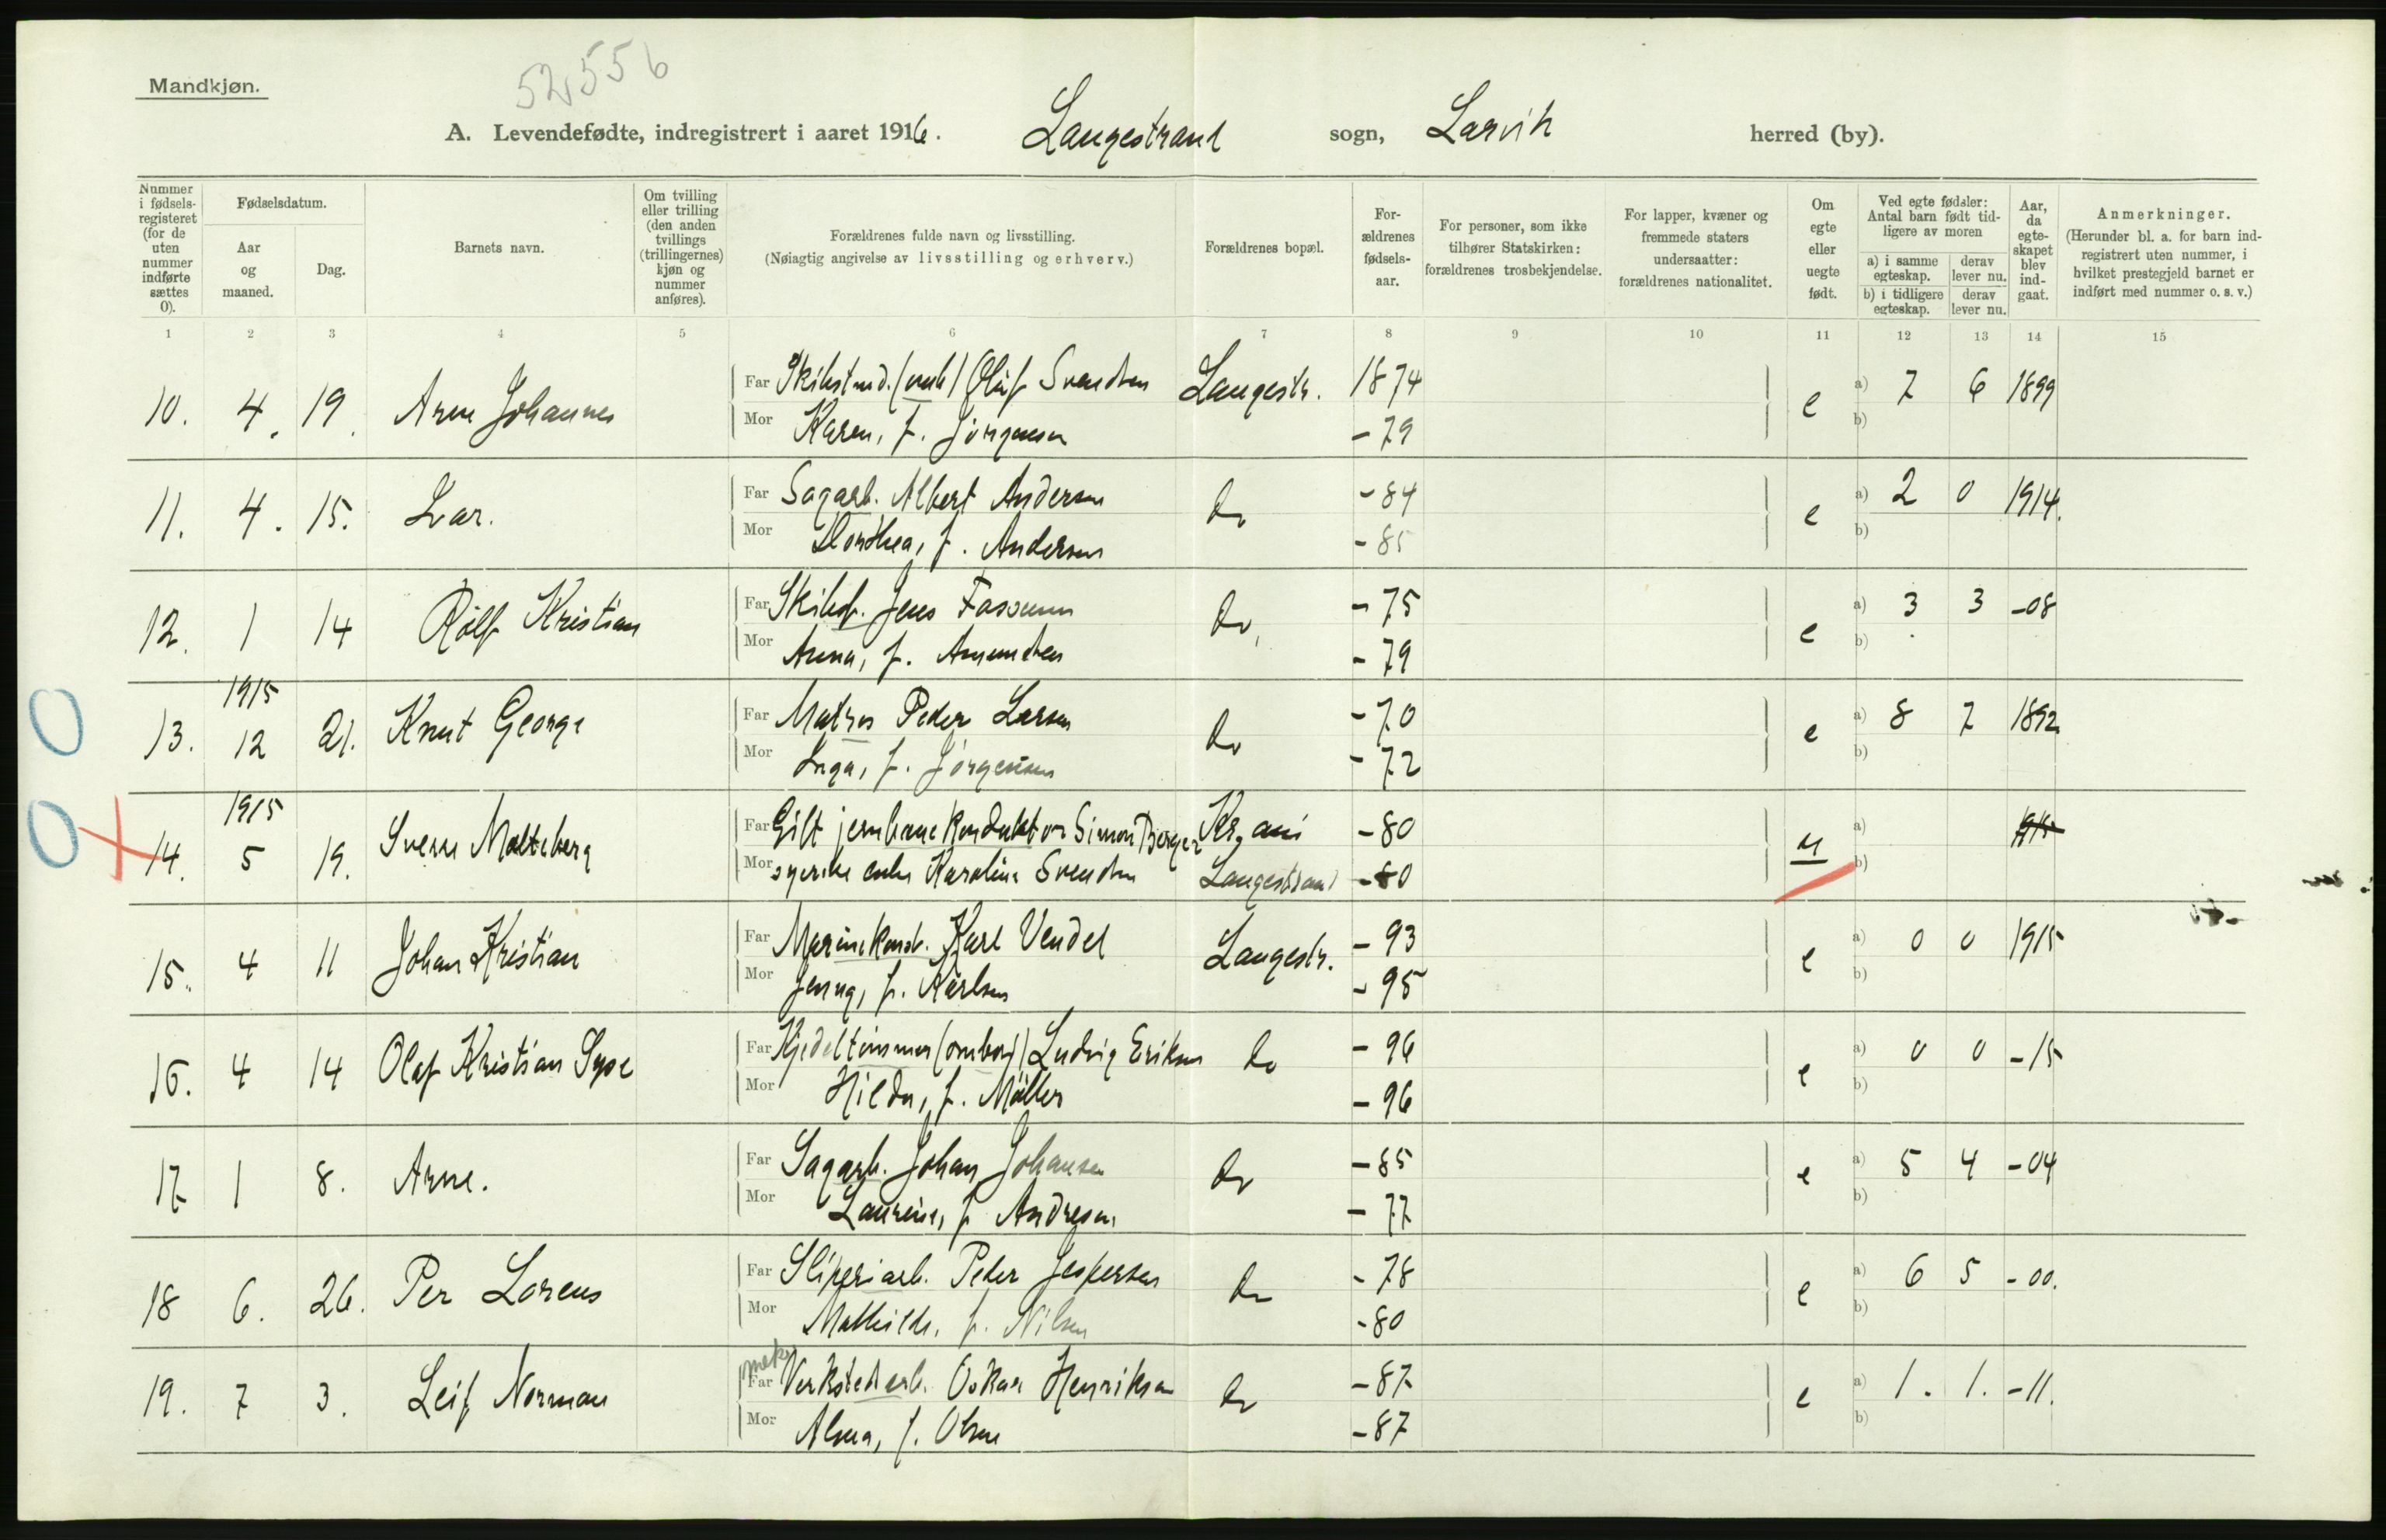 Mandkjøn.
52,556
A. Levendefødte, indregistrert i aaret 1916. Langestrand sogn, Larvik herred (by).
Nummer i fødselsregisteret (for de uten nummer indførte sættes 0).
Fødselsdatum.
Aar og maaned.
Dag.
Barnets navn.
Om tvilling eller trilling (den anden tvillings (trillingernes) kjøn og nummer anføres).
Forældrenes fulde navn og livsstilling.
(Nøiagtig angivelse av livsstilling og erhverv.)
Forældrenes bopæl.
Forældrenes fødselsaar.
For personer, som ikke tilhører Statskirken: forældrenes trosbekjendelse.
For lapper, kvæner og fremmede staters undersaatter: forældrenes nationalitet.
Om egte eller uegte født.
Ved egte fødsler: Antal barn født tidligere av moren
a) i samme egteskap. derav lever nu.
b) i tidligere egteskap. derav lever nu.
Aar, da egteskapet blev indgaat.
Anmerkninger.
(Herunder bl. a. for barn indregistrert uten nummer, i hvilket prestegjeld barnet er indført med nummer o. s. v.)
1 2 3 4 5 6 7 8 9 10 11 12 13 14 15
10. 4. 19. Arne Johannes Far Olaf Svendsen Langestr. 1874 e a) 7 6 1899
Mor Karen, f. Jörgensen - 79 b)
11. 4. 15. Ivar. Far Sagarb. Albert Andersen do - 84 e a) 2 0 1914.
Mor Dorthea, f. Andersen - 85 b)
12. 1 14 Rolf Kristian Far Jens Fossum do, - 75 e a) 3 3 -08
Mor Anna, f. Amundsen - 79 b)
1915
13. 12 21. Knut George Far Matros Peder Larsen do - 70 e a) 8 7 1892
Mor Inga, f. Jörgensen - 72 b)
1915
14. 5 19. Sverre Molteberg Far Gift jernbanekonduktør Simon Berger Kr.ania - 80 u a) 1915
Mor syerske enke Karoline Svendsen Langestrand - 80 b)
15. 4 11 Johan Kristian Far Karl Vendel Langestr. - 93 e a) 0 0 1915
Mor Jenny, f. Karlsen - 95 b)
16. 4 14 Olaf Kristian Far Kjedeltømmer (ombord) Ludvig Eriksen do - 96 e a) 0 0 -15
Mor Hilda, f. Möller - 96 b)
17 1 8. Arne. Far Sagarb. Johan Johansen do - 85 e a) 5 4 -04
Mor Laurine, f. Andresen - 77 b)
18 6. 26. Per Lorens Far Sliperiarb. Peder Jespersen do - 78 e a) 6 5 -00.
Mor Mathilde, f. Nilsen - 80 b)
mek.
19. 7 3. Leif Norman Far Verkstedarb. Oskar Henriksen do - 87 e a) 1. 1. -11.
Mor Alma, f. Olsen - 87 b)